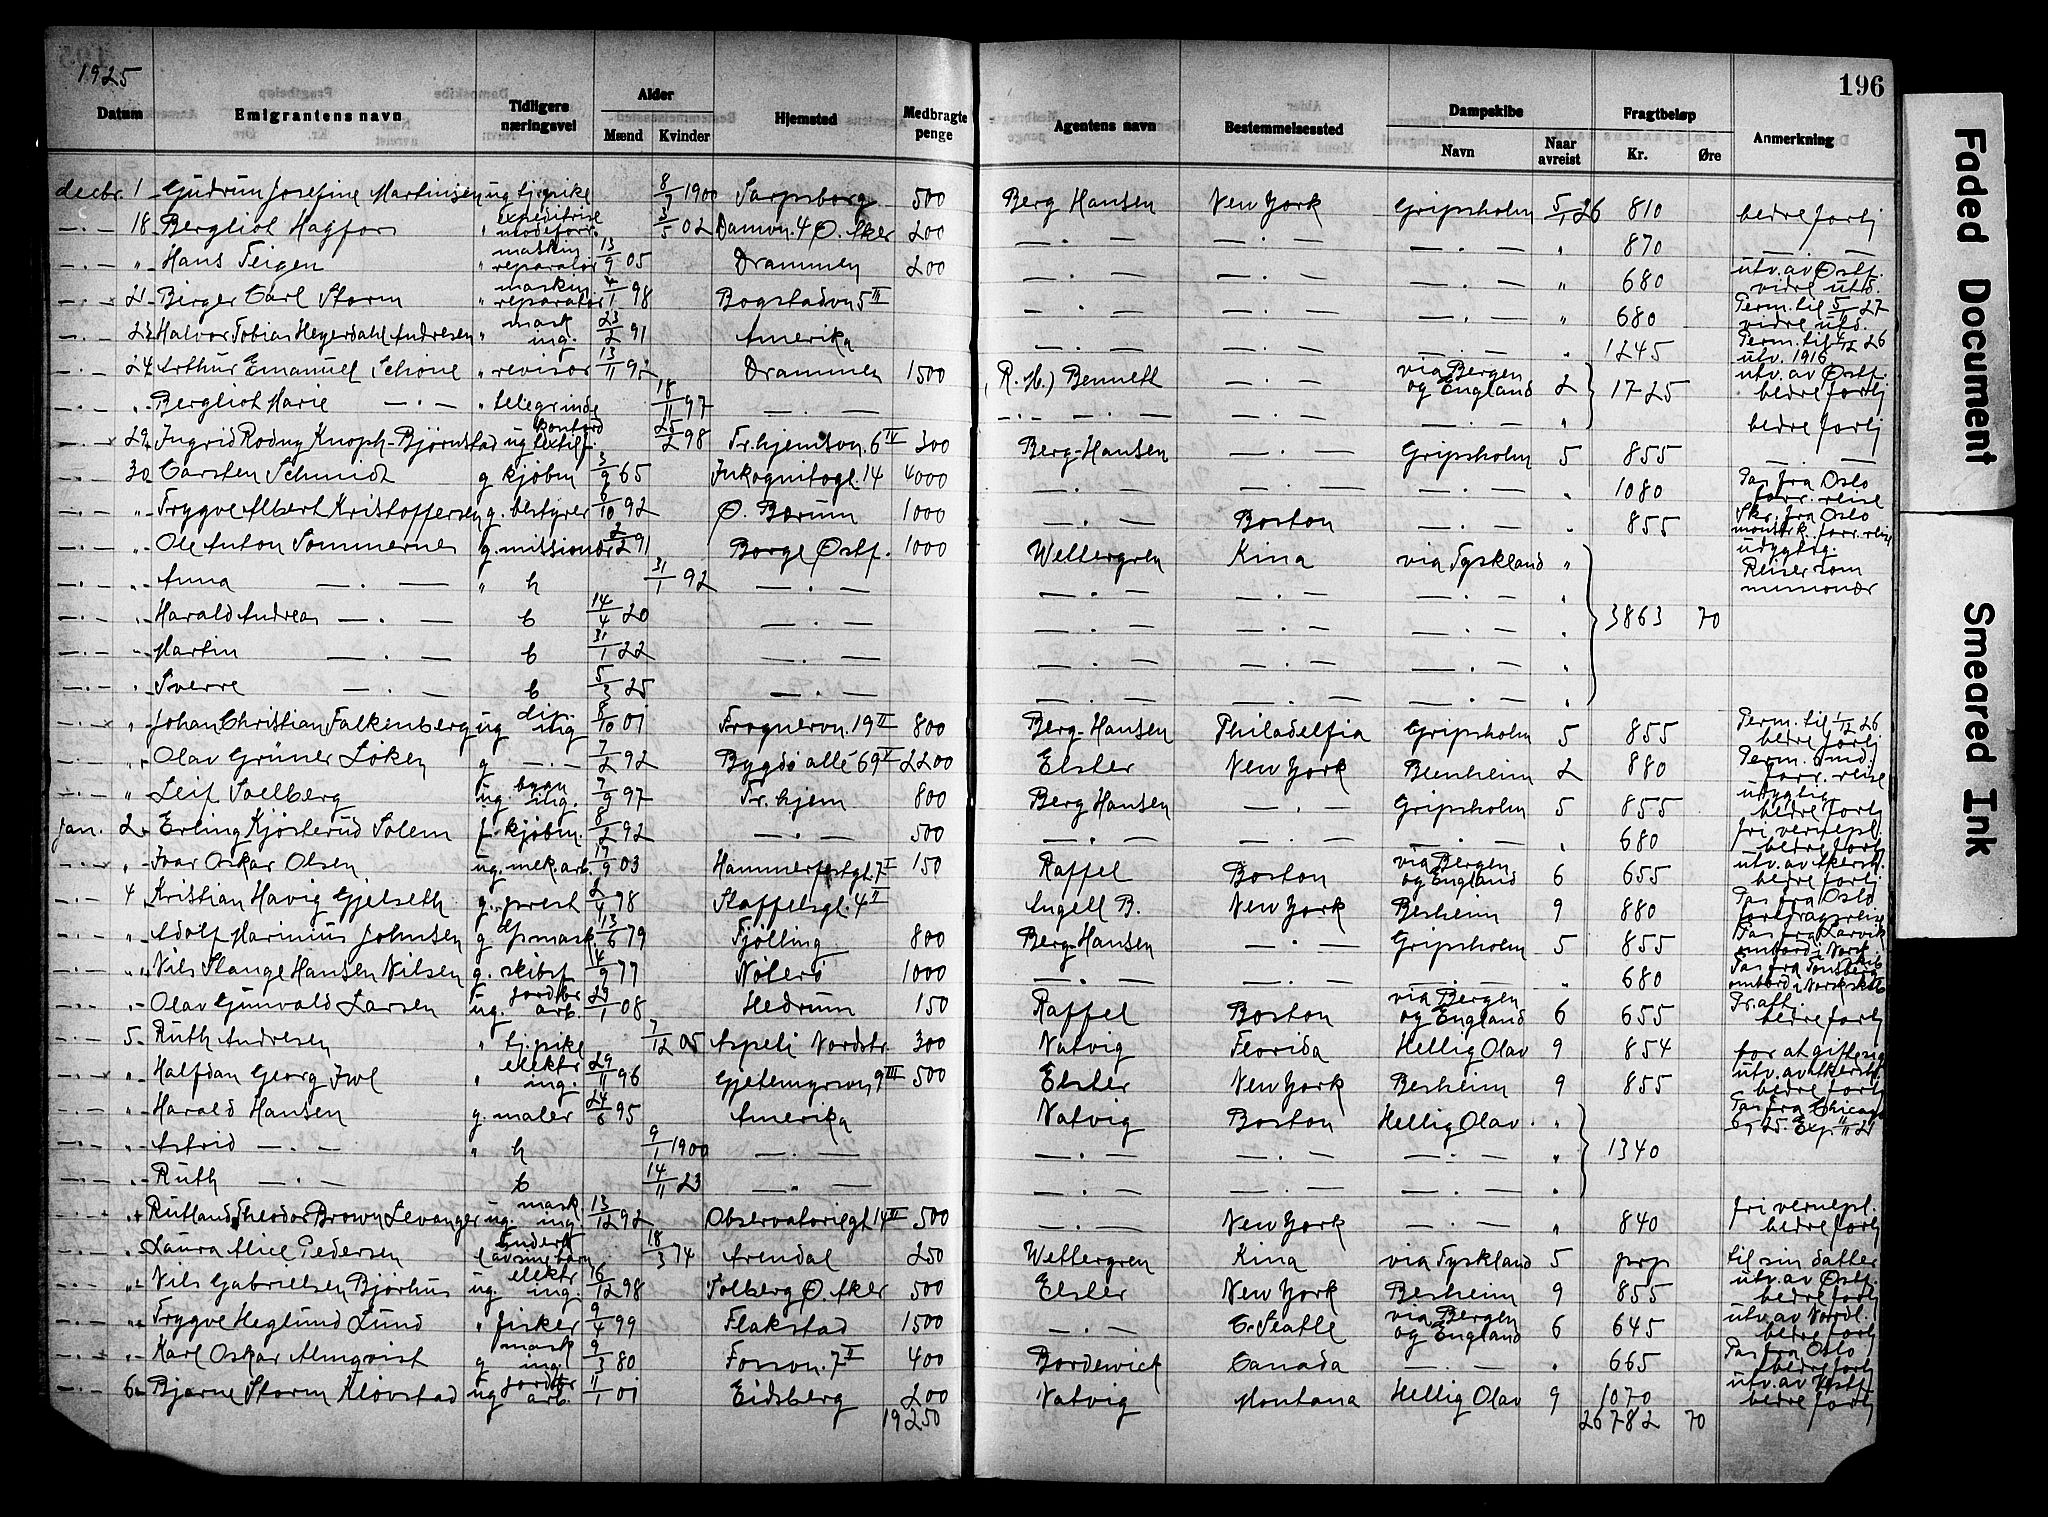 1925
196
Datum Emigrantens navn Tidligere næringsvei Alder Mænd Kvinder Hjemsted Medbragte penge Agentens navn Bestemmelsessted Dampskibe Navn Naar avreist Fragtbeløp Kr. Øre Anmerkning
decbr. 1 Gudrun Josefine Martinsen ug tj.pike 8/7 1900 Sarpsborg 500 Berg Hansen New York Gripsholm 5/1 26 810 bedre fortj
18 Bergliot Hagfors " expeditrise modeforr. 3/5 02 Damvn. 4 Ø. Aker 200 " 870
" Hans Teigen " maskin reparatør 13/9 05 Drammen 200 " 680 utv. av Østf. vidre utd.
21 Birger Carl Storm " maskin reparatør 4/1 98 Bogstadvn 5 III " 680 Perm. til 5/1 27 vidre utd.
23 Halvor Tobias Heyerdahl Andresen " mask ing. 23/2 91 Amerika " 1245 Perm. til 4/12 26 utv. 1916
24 Arthur Emanuel Schöne " revisor 13/11 95 Drammen 1500 (R. H.) Bennett via Bergen og England 2 1725 utv. av Østf. bedre fortj
" Bergliot Marie " telegr.inde 18/11 97 " bedre fortj
29 Ingrid Rodny Knoph-Bjørnstad ug kontord textilf. 25/2 98 Tr.hjemsvn. 6 IV 300 Berg-Hansen Gripsholm 5 855
30 Carsten Schmidt g kjøbm 3/9 65 Inkognitogt. 14 4000 " 1080 Pas fra Oslo forr. reise
" Trygve Albert Kristoffersen g. bestyrer 6/10 92 Ø. Bærum 1000 Boston " 855 Skr. fra Oslo forr. reise
" Ole Anton Sommernes g. missionær 2/2 91 Borge Østf. 1000 Wettergren Kina via Tyskland " udygtig. Reiser som missionær
" Anna " h 31/1 92
" Harald Andreas b 14/4 20 3863 70
" Martin b 31/1 22
" Sverre b 5/3 25
" Johan Christian Falkenberg ug dipl ing 8/10 01 Frognervn. 19 II 800 Berg-Hansen Philadelfia Gripsholm 5 855 Perm. til 1/12 26 bedre fortj
" Olav Grüner Løken g 7/2 92 Bygdø allé 69 V 2200 Elster New York Besheim 2 880 Perm. forr. reise
" Leif Soelberg ug. bygn ing. 7/9 97 Tr. hjem 800 Berg Hansen Gripsholm 5 855 udygtig bedre fortj
jan. 2 Erling Kjøsterud Solem f. kjøbm. 8/2 92 500 " 680 fri vernepl. bedre fortj
" Ivar Oskar Olsen ug. mek. arb. 17/9 03 Hammerfestgt. 7 I 150 Raffel Boston via Bergen og England 6 655 utv. av Akersh. bedre fortj
4 Kristian Havig Gjelseth g. prest 2/4 78 Staffelsgt. 4 II Angell B. New York Besheim 9 880 Pas fra Oslo foredragsreise
" Adolf Marinius Johnsen g Opmask. 13/6 79 Tjølling 800 Berg-Hansen Gripsholm 5 855 Pas fra Larvik ombord i Norsk skib
" Nils Stange Hansen Nilsen g. skibsf 4/9 77 Nøterø 1000 " 680 Pas fra Tønsberg ombord i Norsk skib
" Olav Gunvald Larsen ug. jordbr arb. 23/1 08 Hedrum 150 Raffel Boston via Bergen og England 6 655 Pr. att. bedre fortj
5 Ruth Andresen " tj.pike 7/12 05 Aspeli Nordstr. 300 Natvig Florida Hellig Olav 9 854 for at gifte sig
" Halfdan Georg Juel " elektr ing. 29/11 96 Gjetemyrsvn 9 III 500 Elster New York Besheim 9 855 utv. av Akersh. bedre fortj
" Harald Hansen g. maler 24/6 95 Amerika Natvig Boston Hellig Olav " Pas fra Chicago
" Astrid " h 9/1 1900 " 1340
" Ruth b 14/11 23 "
" Rutland Theodor Brown Levanger ug. mask ing 13/12 92 Observatoriegt. 14 II 500 New York " 840 fri vernepl. bedre fortj
" Laura Alice Pedersen 18/3 74 Arendal 250 Wettergren Kina via Tyskland 5 prp til sin datter
" Nils Gabrielsen Bjørhus ug. elektr ing. 16/12 98 Solberg Ø. Aker 500 Elster New York Besheim 9 855 utv. av Østf. bedre fortj
" Trygve Heglund Lund " fisker 9/4 99 Flakstad 1500 Seatle via Bergen og England 6 645 utv. av Nordl. bedre fortj
" Karl Oskar Almqvist g mask ing. 9/3 80 Fossvn. 7 II 400 Bordewick Canada " 665 Pas fra Oslo bedre fortj
6 Bjarne Storm Kløvstad ug jordbr arb. 11/1 01 Eidsberg 200 Natvig Montana Hellig Olav 9 1070 utv. av Østf. bedre fortj
19250 26782 70
Faded Document
Smeared Ink